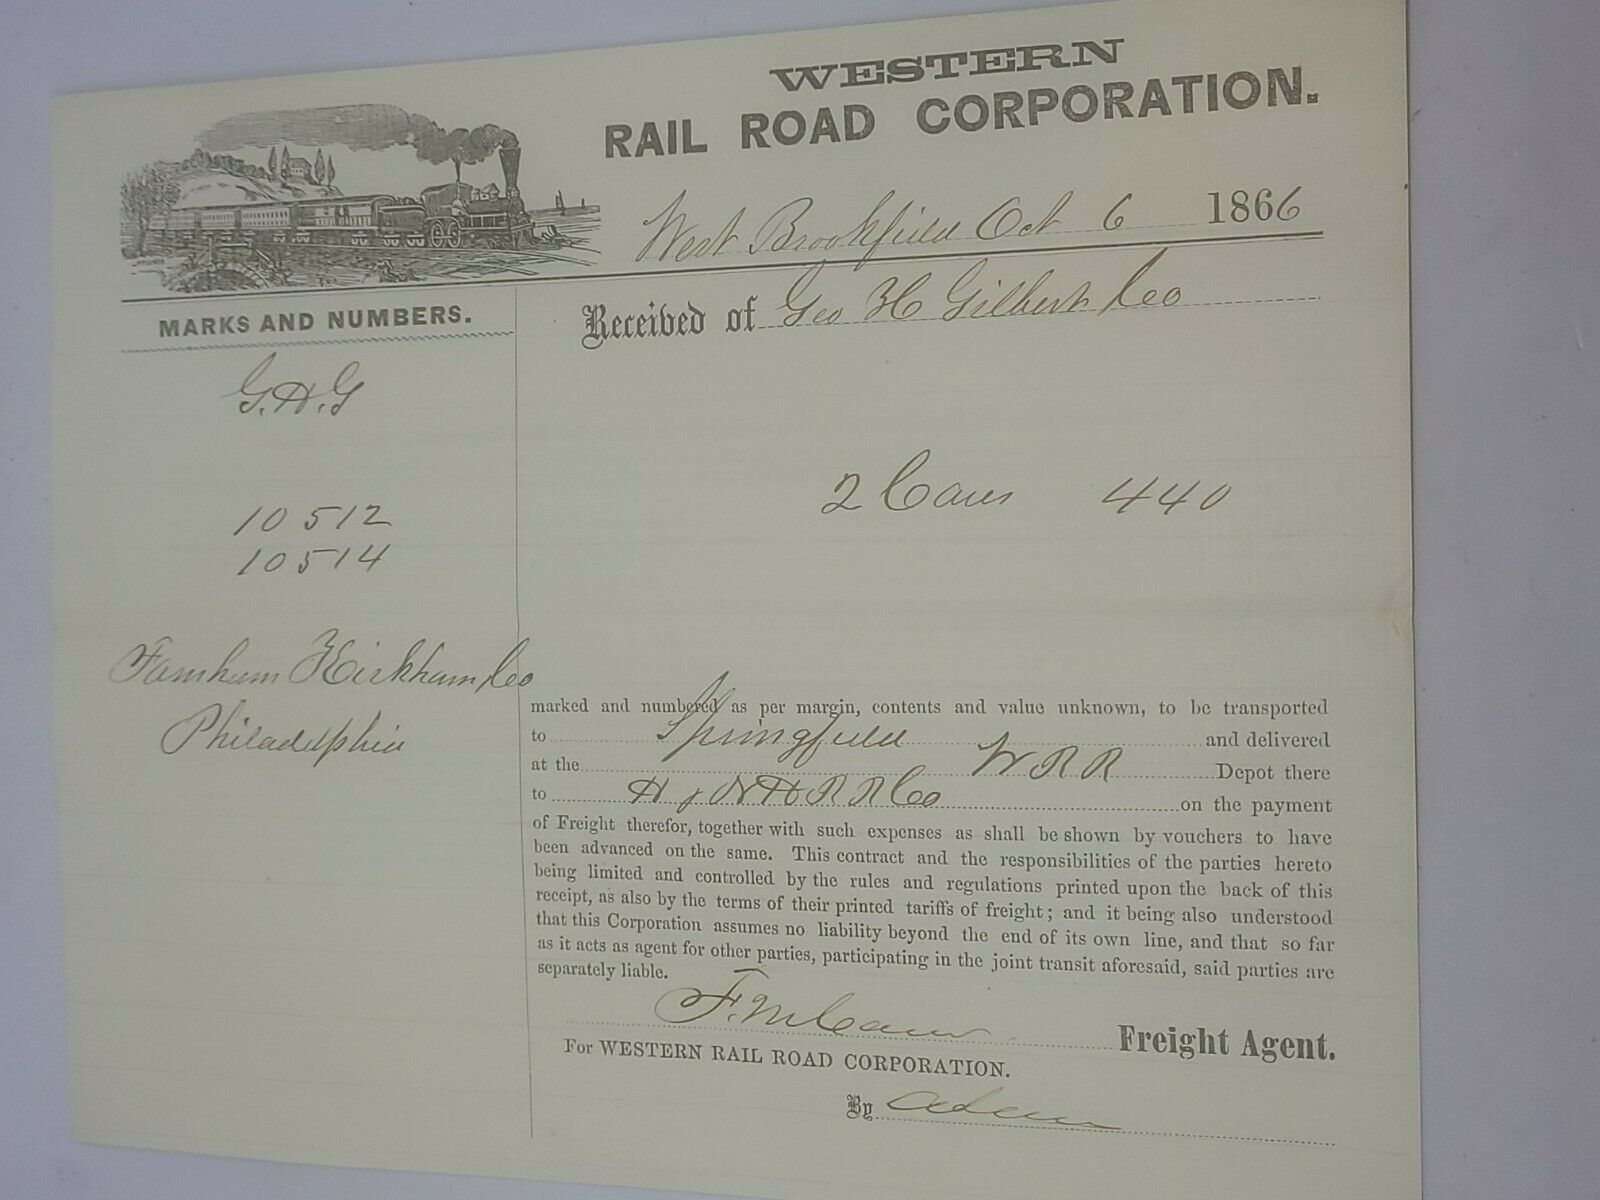 WESTERN
RAIL ROAD CORPORATION.
West Brookfield Oct 6 1866
MARKS AND NUMBERS.
Received of Geo H Gilbert &Co
G.H.G
2 Cases 440
10512
10514
Farnham Kirkham &Co
Philadelphia
marked and numbered as per margin, contents and value unknown, to be transported
to Springfield and delivered
at the W R R Depot there
to H & N H R R Co on the payment
of Freight therefor, together with such expenses as shall be shown by vouchers to have
been advanced on the same. This contract and the responsibilities of the parties hereto
being limited and controlled by the rules and regulations printed upon the back of this
receipt, as also by the terms of their printed tariffs of freight; and it being also understood
that this Corporation assumes no liability beyond the end of its own line, and that so far
as it acts as agent for other parties, participating in the joint transit aforesaid, said parties are
separately liable.
Freight Agent.
For WESTERN RAIL ROAD CORPORATION.
By